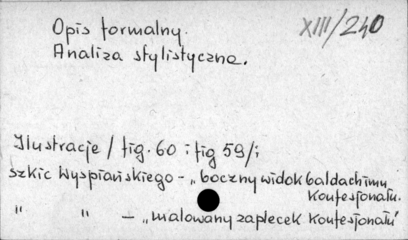 Opis formalny.
XIII/240
Analiza stylistyczna.
Ilustracje / fig. 60 i fig 59/;
szkic Wyspiańskiego - „boczny widok baldachimu
Konfesjonału.
" " - „malowany zaplecek Konfesjonału"